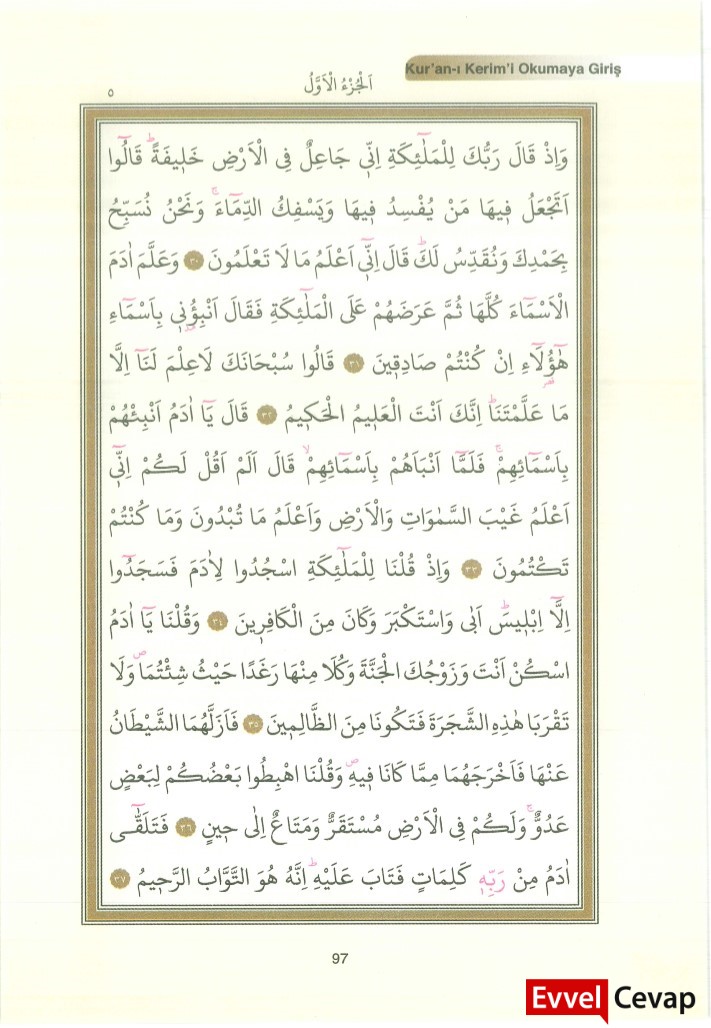 Kur'an-ı Kerim'i Okumaya Giriş
اَلْجُزْءُ الْاَوَّلُ
٥
وَاِذْ قَالَ رَبُّكَ لِلْمَلٰٓئِكَةِ اِنّ۪ي جَاعِلٌ فِي الْاَرْضِ خَل۪يفَةًۜ قَالُٓوا
اَتَجْعَلُ ف۪يهَا مَنْ يُفْسِدُ ف۪يهَا وَيَسْفِكُ الدِّمَٓاءَۚ وَنَحْنُ نُسَبِّحُ
بِحَمْدِكَ وَنُقَدِّسُ لَكَۜ قَالَ اِنّ۪ٓي اَعْلَمُ مَا لَا تَعْلَمُونَ ﴿٣٠﴾ وَعَلَّمَ اٰدَمَ
الْاَسْمَٓاءَ كُلَّهَا ثُمَّ عَرَضَهُمْ عَلَى الْمَلٰٓئِكَةِ فَقَالَ اَنْبِؤُ۫ن۪ي بِاَسْمَٓاءِ
هٰٓؤُ۬لَٓاءِ اِنْ كُنْتُمْ صَادِق۪ينَ ﴿٣١﴾ قَالُوا سُبْحَانَكَ لَا عِلْمَ لَنَٓا اِلَّا
مَا عَلَّمْتَنَاۜ اِنَّكَ اَنْتَ الْعَل۪يمُ الْحَك۪يمُ ﴿٣٢﴾ قَالَ يَٓا اٰدَمُ اَنْبِئْهُمْ
بِاَسْمَٓائِهِمْۚ فَلَمَّٓا اَنْبَاَهُمْ بِاَسْمَٓائِهِمْۙ قَالَ اَلَمْ اَقُلْ لَكُمْ اِنّ۪ٓي
اَعْلَمُ غَيْبَ السَّمٰوَاتِ وَالْاَرْضِ وَاَعْلَمُ مَا تُبْدُونَ وَمَا كُنْتُمْ
تَكْتُمُونَ ﴿٣٣﴾ وَاِذْ قُلْنَا لِلْمَلٰٓئِكَةِ اسْجُدُوا لِاٰدَمَ فَسَجَدُٓوا
اِلَّٓا اِبْل۪يسَۜ اَبٰى وَاسْتَكْبَرَ وَكَانَ مِنَ الْكَافِر۪ينَ ﴿٣٤﴾ وَقُلْنَا يَٓا اٰدَمُ
اسْكُنْ اَنْتَ وَزَوْجُكَ الْجَنَّةَ وَكُلَا مِنْهَا رَغَدًا حَيْثُ شِئْتُمَاۖ وَلَا
تَقْرَبَا هٰذِهِ الشَّجَرَةَ فَتَكُونَا مِنَ الظَّالِم۪ينَ ﴿٣٥﴾ فَاَزَلَّهُمَا الشَّيْطَانُ
عَنْهَا فَاَخْرَجَهُمَا مِمَّا كَانَا ف۪يهِۖ وَقُلْنَا اهْبِطُوا بَعْضُكُمْ لِبَعْضٍ
عَدُوٌّۚ وَلَكُمْ فِي الْاَرْضِ مُسْتَقَرٌّ وَمَتَاعٌ اِلٰى ح۪ينٍ ﴿٣٦﴾ فَتَلَقّٰٓى
اٰدَمُ مِنْ رَبِّه۪ كَلِمَاتٍ فَتَابَ عَلَيْهِۜ اِنَّهُ هُوَ التَّوَّابُ الرَّح۪يمُ ﴿٣٧﴾
97
Evvel Cevap